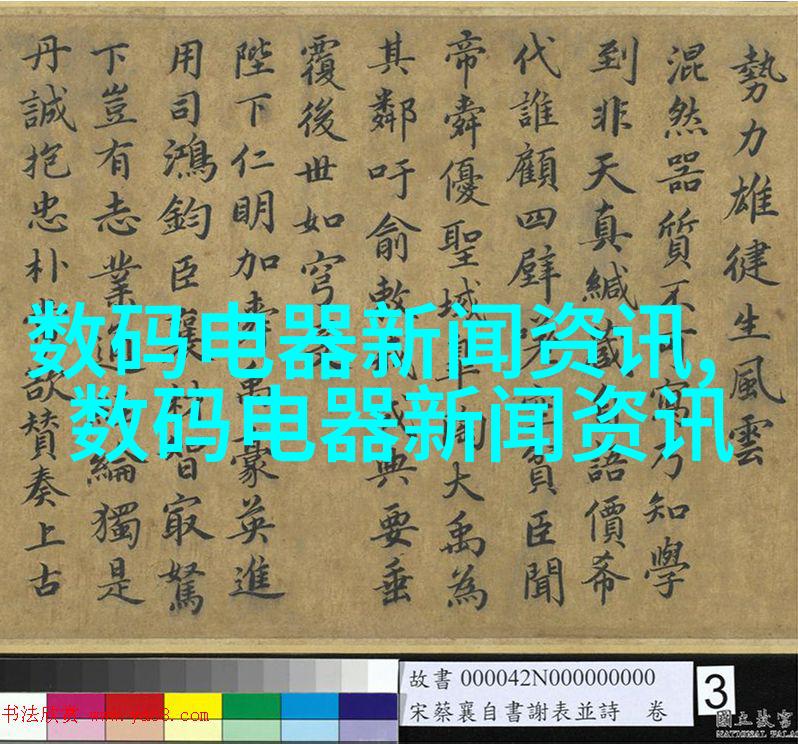 勢力雄徤生風雲
混然器質不可 乃知學
到非天真緘藏 語價希
代誰顧四壁 貧臣聞
帝舜優聖域皐陶大禹為
其鄰吁俞敷 典要垂
覆後世如穹
陛下仁明加 蒙英進
用司鴻鈞臣襄材智㝡駑
下豈有志業 綸獨是
丹誠抱忠朴常欲賛奏上古
数码电器新闻资讯,
数码电器新闻资讯
故書 000042N000000000
宋蔡襄自書謝表並詩 卷
3
书法欣赏
國立故宮
NATIONAL PALA